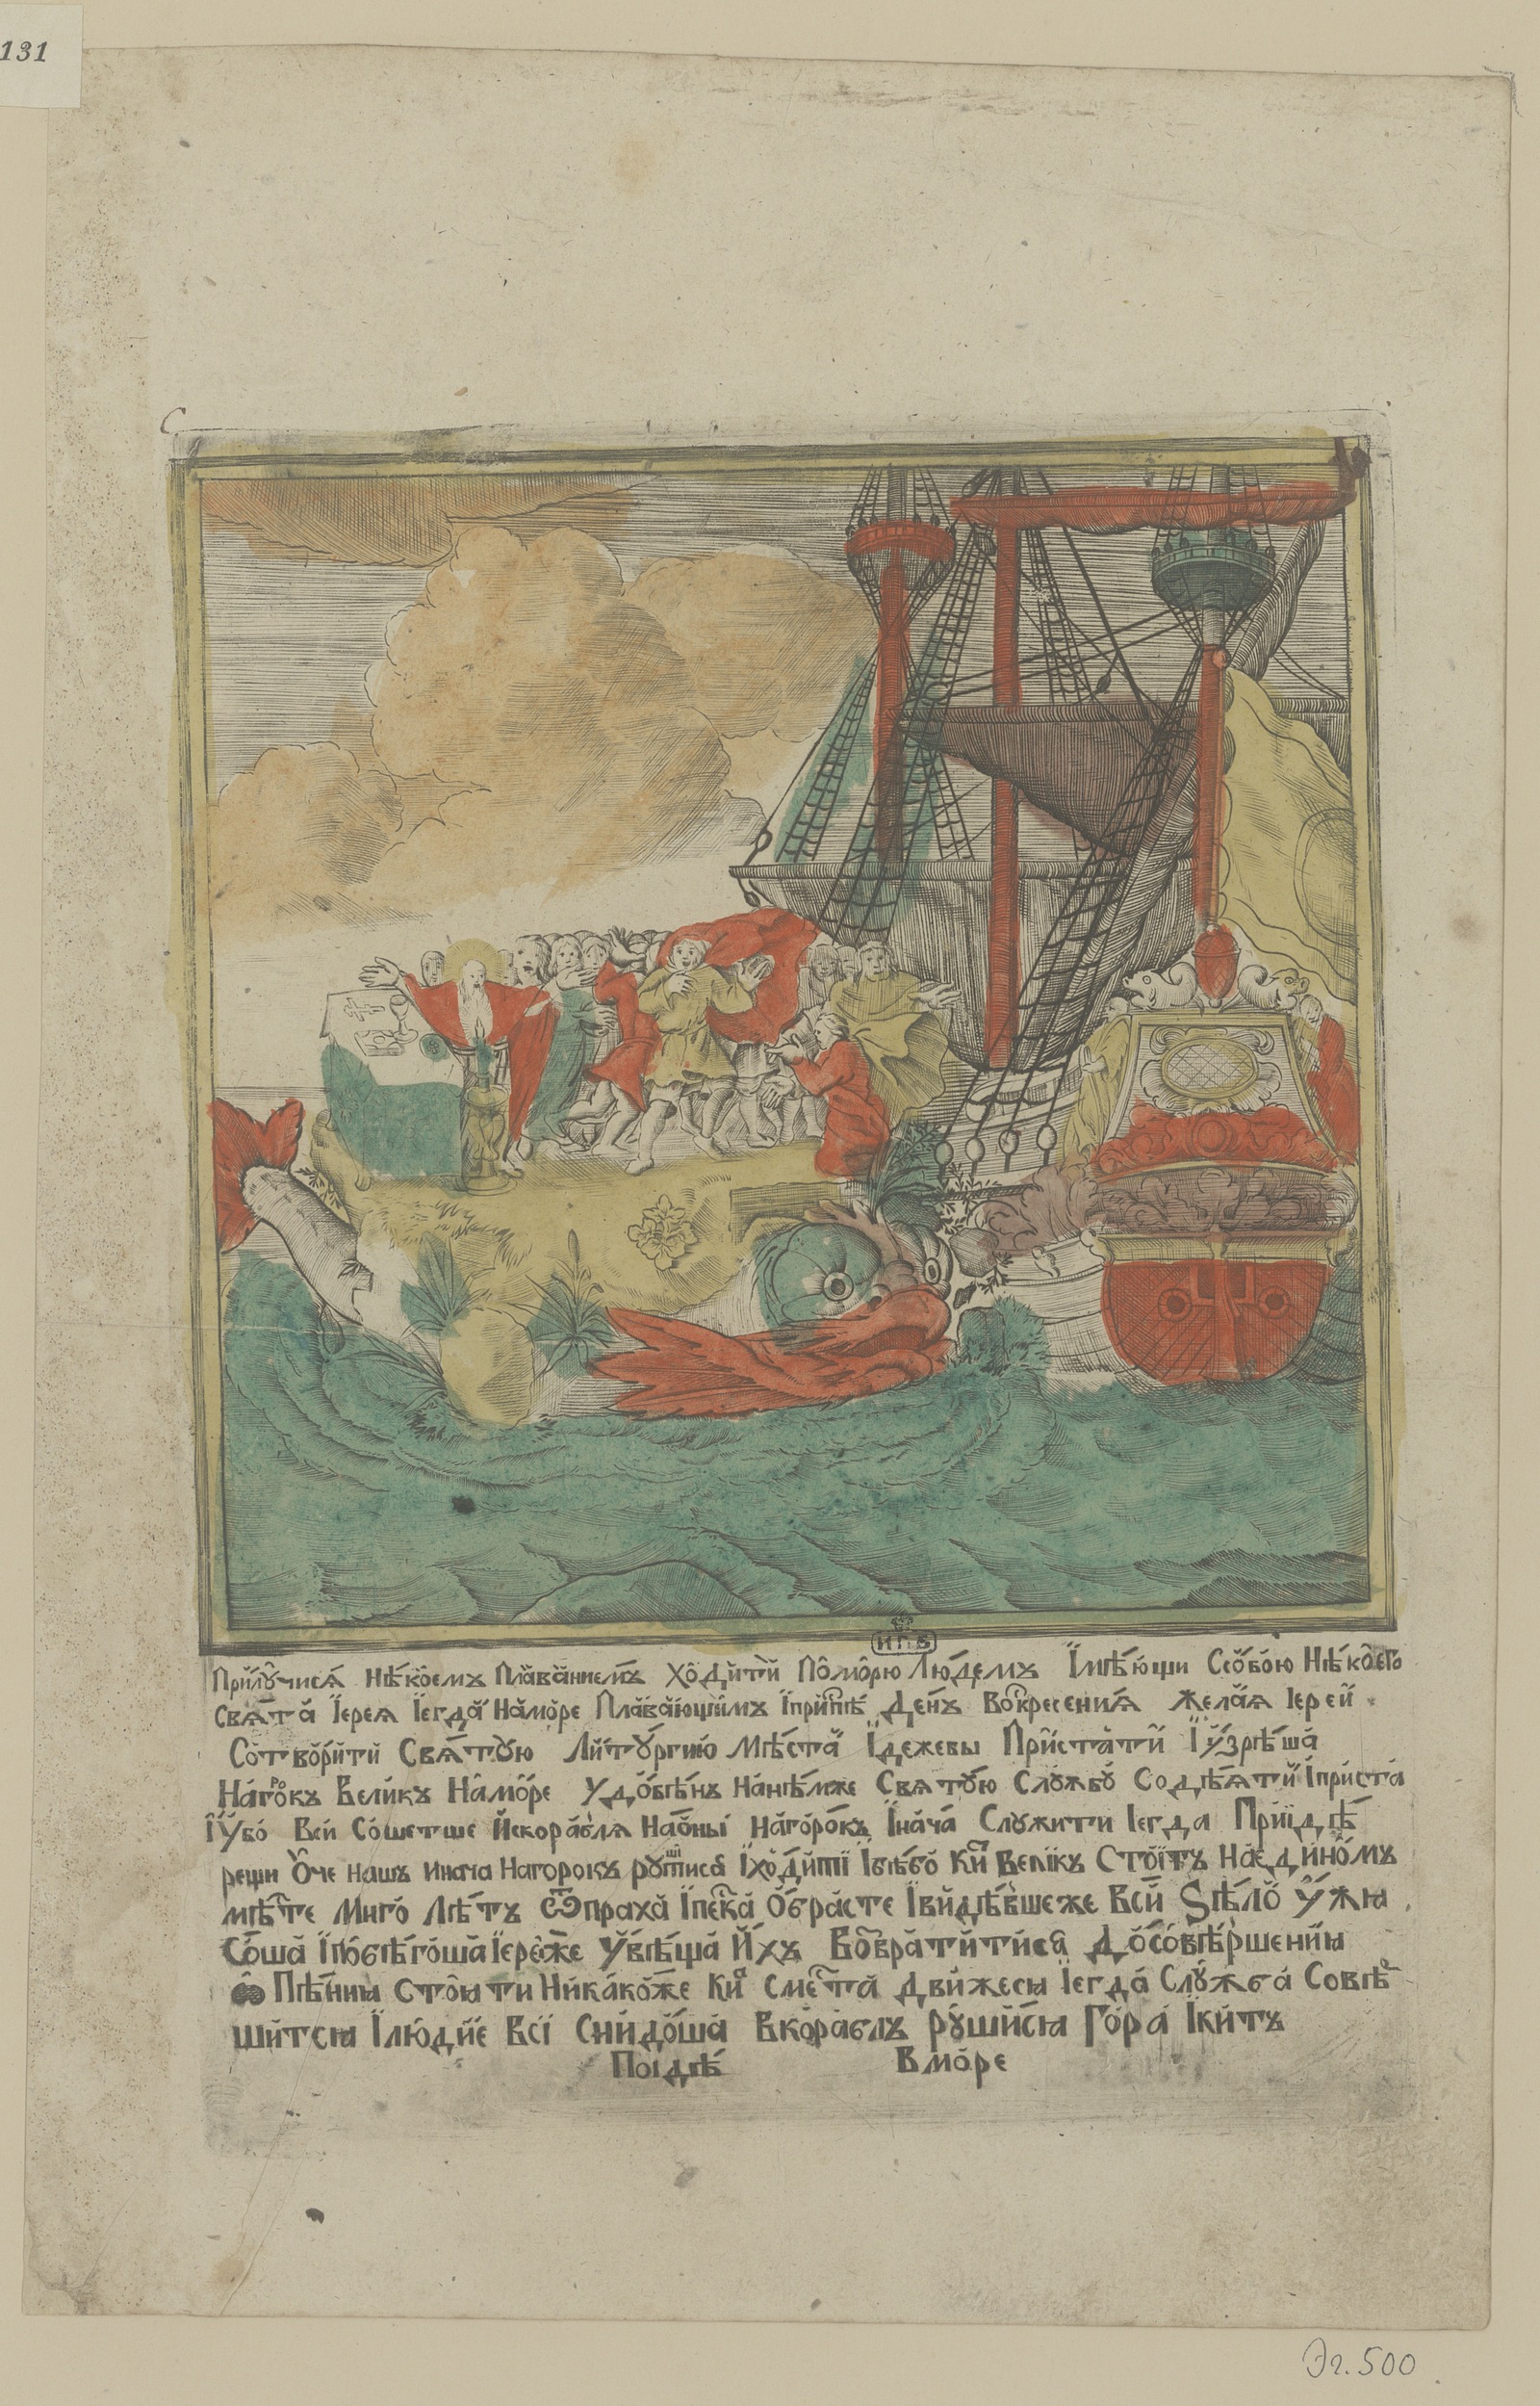 131
Прилꙋчисѧ нѣкоемъ плаваниемъ ходити поморю людемъ імѣющи собою нѣкоего
свѧта іереѧ іегда наморе плавающимъ іприспѣ день воскресениѧ желаѧ іерей
сотворити свѧтꙋю литꙋргию мѣста ідежевы пристати іꙋзрѣша
нагорокъ великъ наморе удобѣнъ нанѣмже свѧтꙋю слꙋжбꙋ содѣѧти іприста
іꙋбо вси сошетше искораблѧ наѡныі нагорокъ інача слꙋжити іегда приідѣ
рещи ѡче нашъ инача нагорокъ рꙋшитисѧ іходити ібѣбо китъ великъ стоітъ наединомъ
мѣсте много лѣтъ ѿпраха іпеска ѡбрасте івидѣвшеже вси ѕѣло ꙋжѧ
соша іпобѣгоша іереѧже ꙋвѣща ихъ возвратитисѧ досовѣршениѧ
пѣниѧ стоѧти никакоже китъ сместа движесѧ іегда слꙋжба совѣр
шитсѧ ілюдиіе всі снидоша вкорабль рꙋшисѧ гора ікитъ
поідѣ вморе
Эг. 500